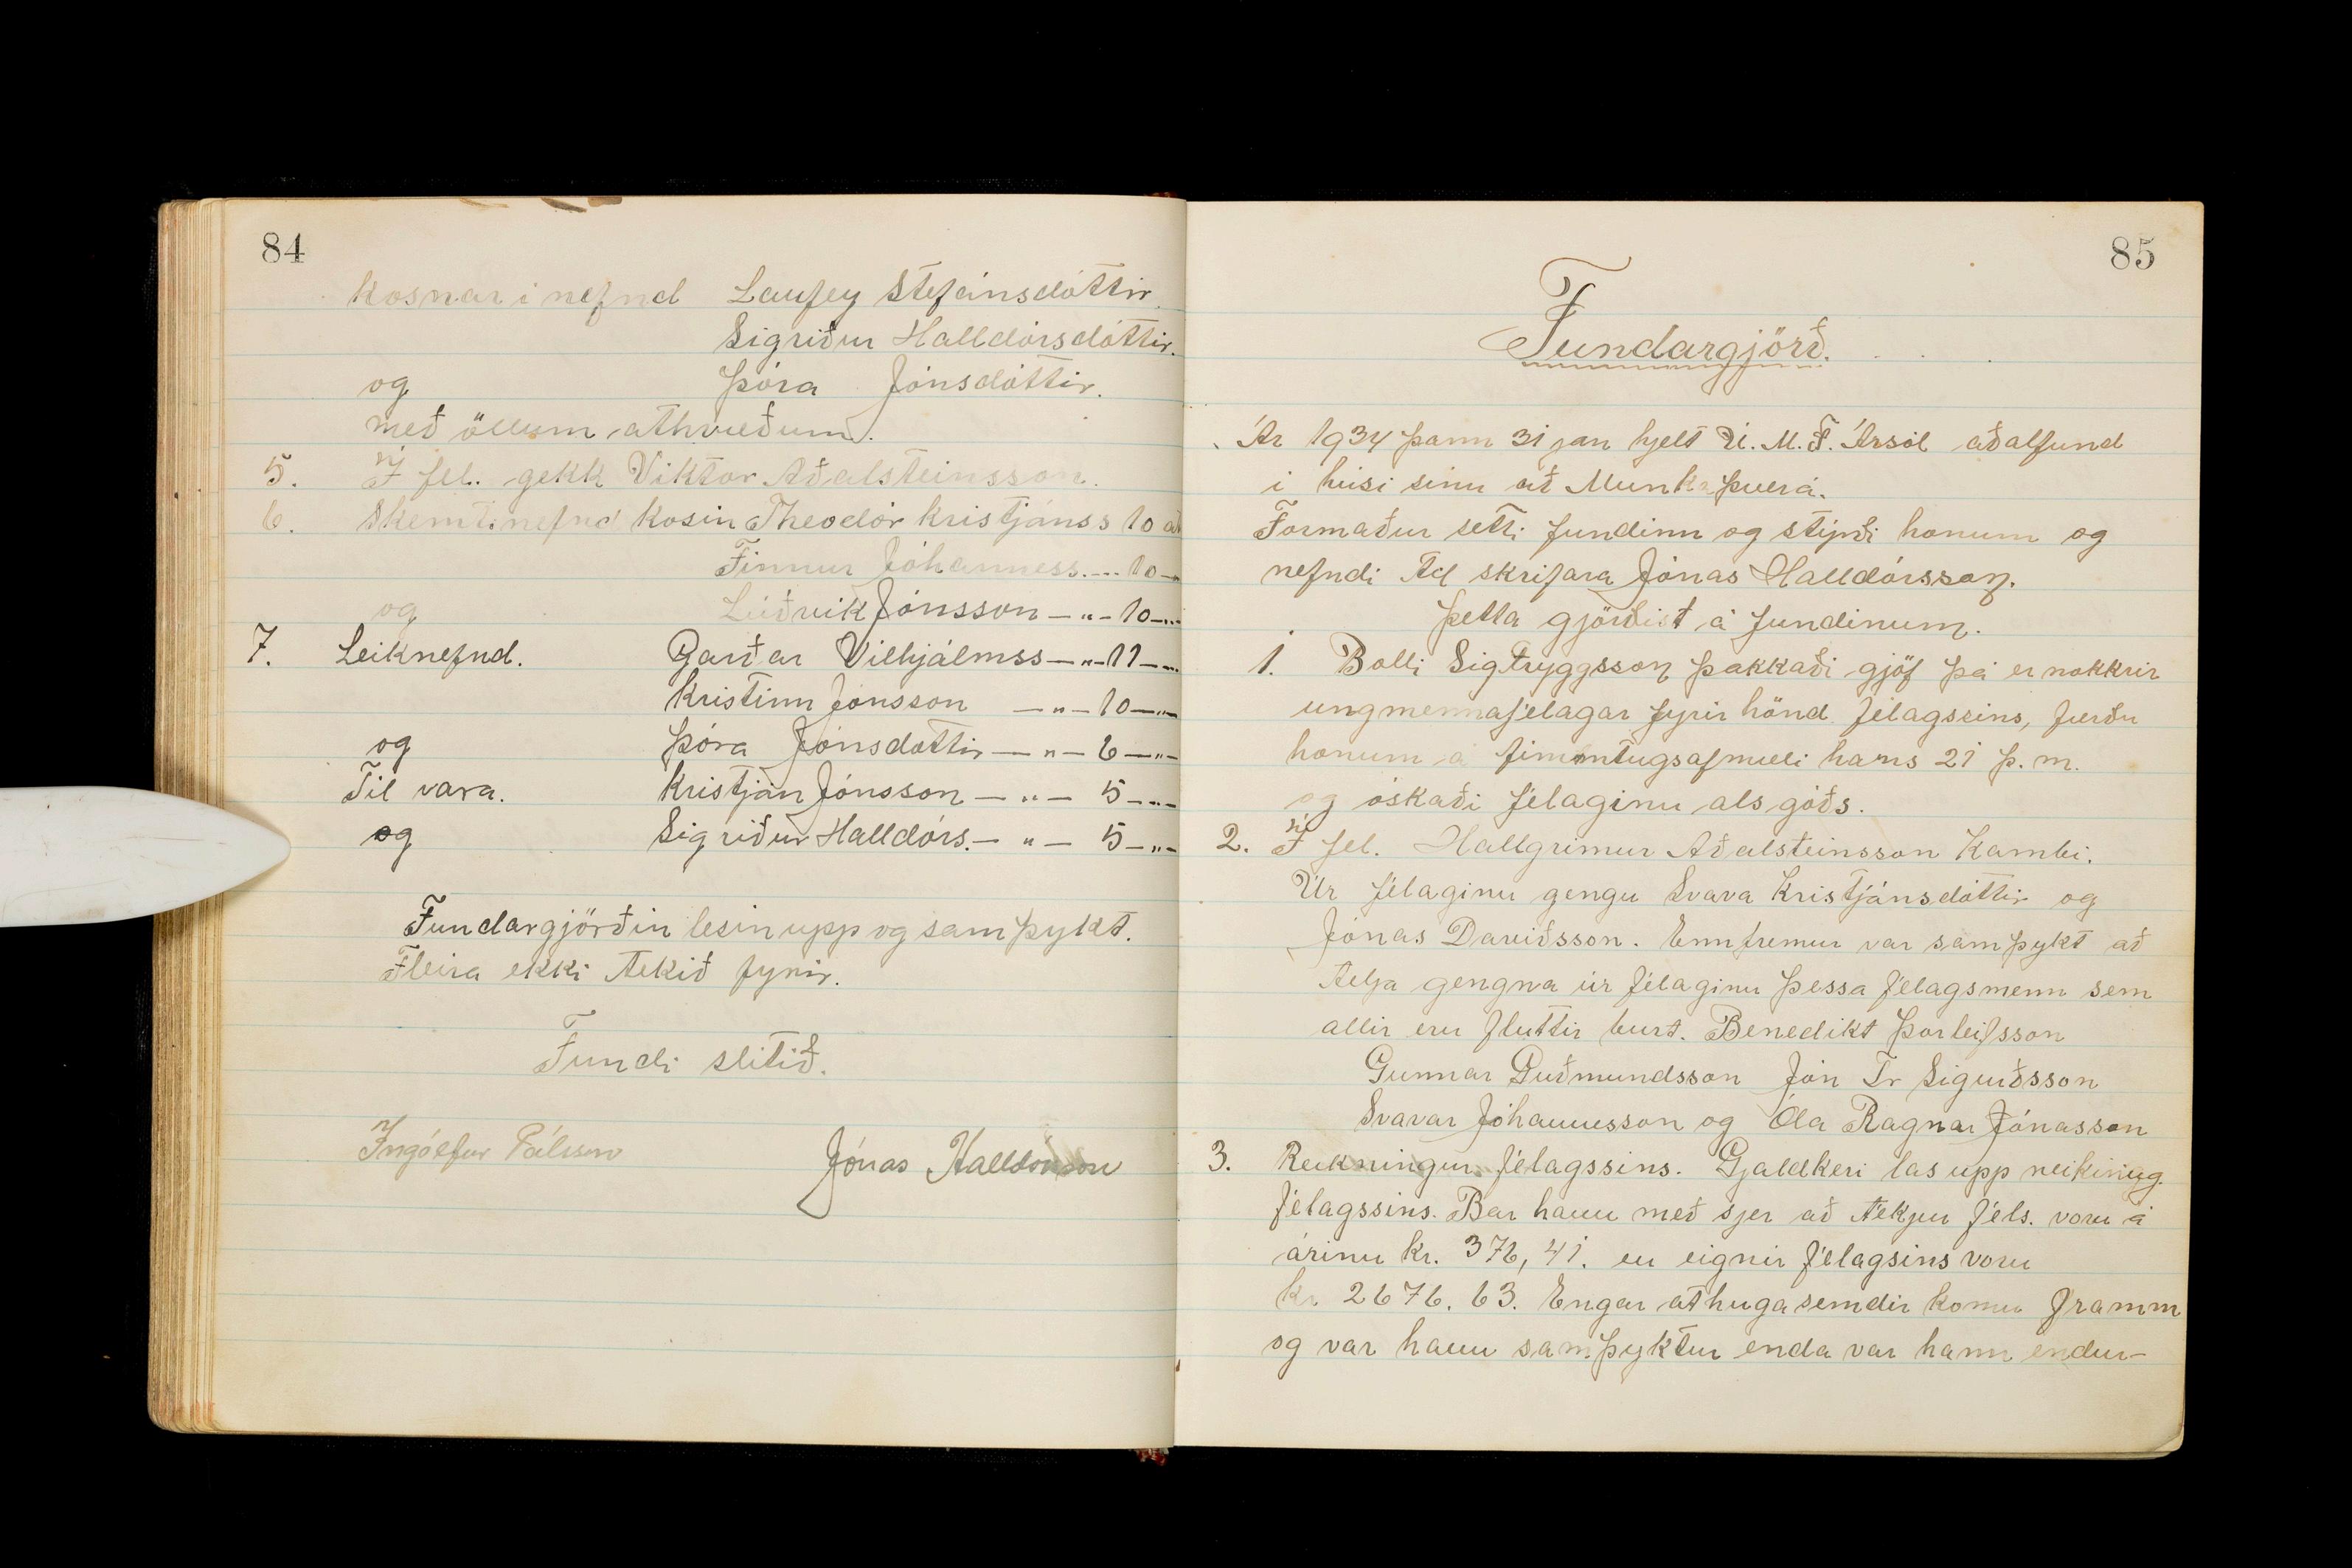 84
kosnar i nefnd Laufey Stefánsdóttir
Sigriður Halldórsdóttir.
og Þóra Jónsdóttir.
með öllum athvæðum.
5. Í fel. gekk Viktor Aðalsteinsson.
6. Skemtinefnd kosin Theodór Kristjánss 10 at
Finnur Jóhanness. — 10 —
og Lúðvik Jónsson — " — 10 — " —
7. Leiknefnd. Garðar Vilhjálmss — " — 11 — " —
Kristinn Jónsson — " — 10 — " —
og Þóra Jónsdóttir — " — 6 — " —
Til vara. Kristján Jónsson — " — 5 — " —
og Sigriður Halldórs. — " — 5 — " —
Fundargjörðin lesin upp og samþykt.
Fleira ekki tekið fyrir.
Fundi slitið.
Ingólfur Pálsson Jónas Halldórsson
85
Fundargjörð.
Ár 1934 þann 31 jan hjelt U. M. F. Ársól aðalfund
i húsi sinu að Munkaþverá.
Formaður setti fundinn og stýrði honum og
nefndi til skrifara Jónas Halldórsson.
Þetta gjörðist á fundinum.
1. Bolli Sigtryggsson þakkaði gjöf þá er nokkrir
ungmennafélagar fyrir hönd félagssins, færðu
honum á fimmtugsafmæli hans 21 þ. m.
og óskaði félaginu als góðs.
2. Í fel. Hallgrimur Aðalsteinsson Kambi.
Úr félaginu gengu Svava Kristjánsdóttir og
Jónas Daviðsson. Ennfremur var samþykt að
telja gengna úr félaginu þessa félagsmenn sem
allir eru fluttir burt. Benedikt Þorleifsson
Gunnar Guðmundsson Jón Tr Sigurðsson
Svavar Jóhannesson og Óla Ragnar Jónasson
3. Reikningur félagssins. Gjaldkeri las upp reikining
félagssins. Bar hann með sjer að tekjur féls. voru á
árinu kr. 376,41. en eignir félagsins voru
kr 2676.63. Engar athugasemdir komu framm
og var hann samþyktur enda var hann endur-